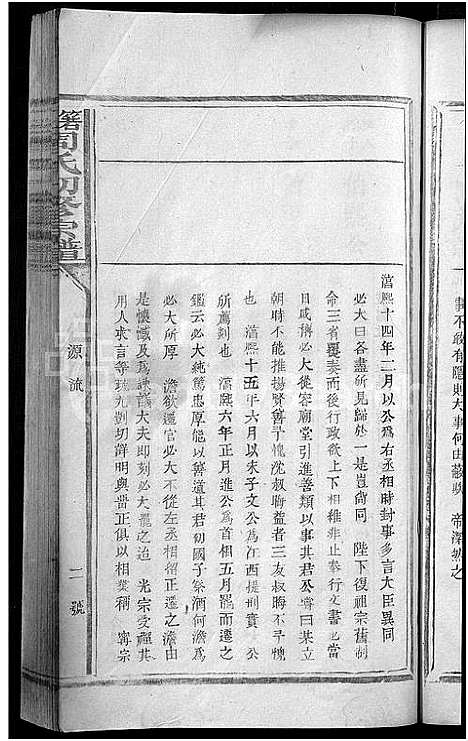 事不敢有隱則大事何由蔽欺　帝深然之
淳熙十四年二月以公爲右丞相時封事多言大臣異同
必大曰各盡所見歸於一是豈尚同　陛下復祖宗舊制
命三省覆奏而後行政欲上下相維非止奉行文書也當
日咸謂必大從容廟堂引進善類以事其君公嘗曰某立
朝時不能推揚賢善予愧沈叔晦益者三友叔晦不予愧
也　淳熙十五年六月以朱子文公爲江西提刑實　公
所爲刻也　淳熙六年正月進公爲首相五月罷而遷之
鑑云必大純篤忠厚能以善道其君初國子祭酒何澹爲
必大所厚　澹欲遷官必大不從左丞相留正遷之澹由
是懷憾及爲諫議大夫即刻必大罷之迨　光宗受禪其
用人求言等疏凡剴切詳明與晉正俱以相業稱　寧宗
周氏初修宗譜
源流
二號